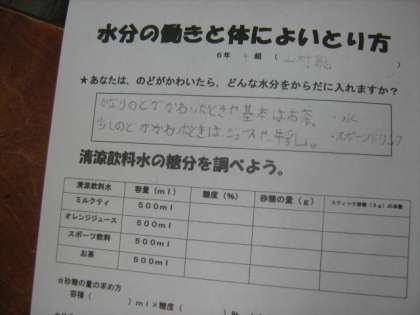 水分の働きと体によいとり方
6年 組( )
★あなたは、のどがかわいたら、どんな水分をからだに入れますか？
かなりのどがかわいたときや基本はお茶、 ・水
少しのどがかわいたときはジュースや、牛乳。 ・スポーツドリンク
清涼飲料水の糖分を調べよう。
清涼飲料水 容量(ml) 糖度(%) 砂糖の量(g) スティック砂糖(3g)の本数
ミルクティ 500ml
オレンジジュース 500ml
スポーツ飲料 500ml
お茶 500ml
★砂糖の量の求め方
容積( )ml×糖度( )%